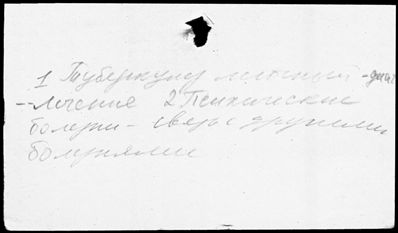 1 Туберкулез легочный -
- лечение 2 Психические
болезни - связь с другими
болезнями